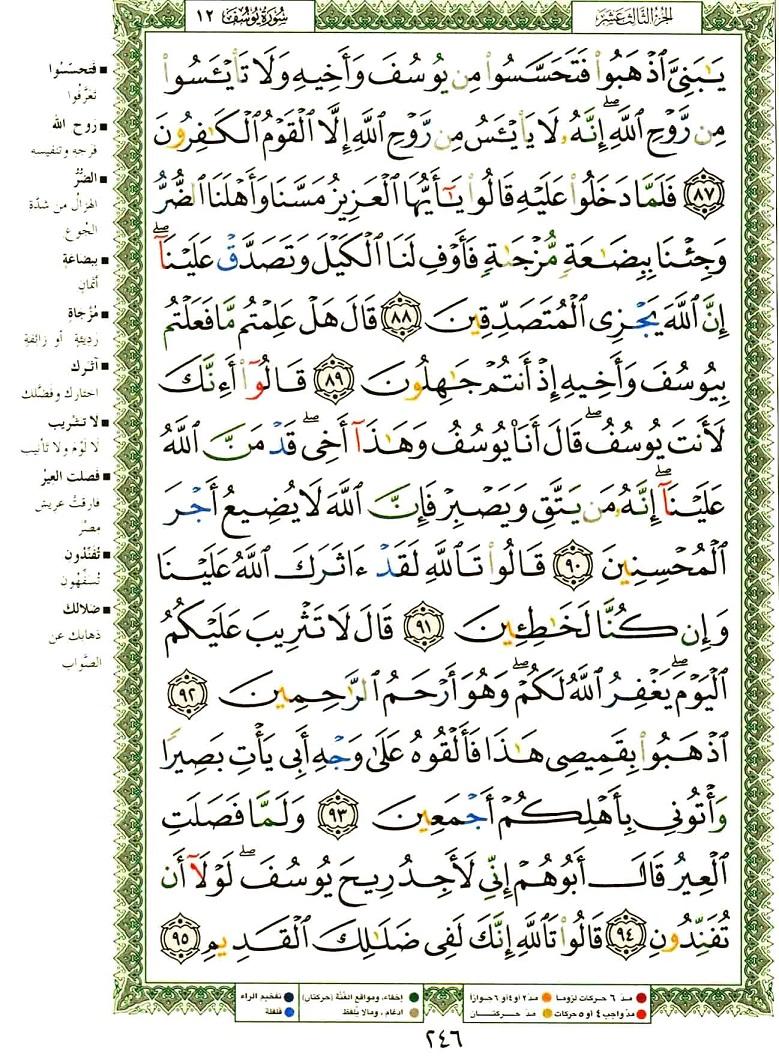 الجزء الثالث عشر
سورة يوسف ١٢
يَٰبَنِيَّ ٱذْهَبُوا۟ فَتَحَسَّسُوا۟ مِن يُوسُفَ وَأَخِيهِ وَلَا تَا۟يْـَٔسُوا۟
مِن رَّوْحِ ٱللَّهِ ۖ إِنَّهُۥ لَا يَا۟يْـَٔسُ مِن رَّوْحِ ٱللَّهِ إِلَّا ٱلْقَوْمُ ٱلْكَٰفِرُونَ
٨٧ فَلَمَّا دَخَلُوا۟ عَلَيْهِ قَالُوا۟ يَٰٓأَيُّهَا ٱلْعَزِيزُ مَسَّنَا وَأَهْلَنَا ٱلضُّرُّ
وَجِئْنَا بِبِضَٰعَةٍ مُّزْجَىٰةٍ فَأَوْفِ لَنَا ٱلْكَيْلَ وَتَصَدَّقْ عَلَيْنَآ ۖ
إِنَّ ٱللَّهَ يَجْزِى ٱلْمُتَصَدِّقِينَ ٨٨ قَالَ هَلْ عَلِمْتُم مَّا فَعَلْتُم
بِيُوسُفَ وَأَخِيهِ إِذْ أَنتُمْ جَٰهِلُونَ ٨٩ قَالُوٓا۟ أَءِنَّكَ
لَأَنتَ يُوسُفُ ۖ قَالَ أَنَا۠ يُوسُفُ وَهَٰذَآ أَخِى ۖ قَدْ مَنَّ ٱللَّهُ
عَلَيْنَآ ۖ إِنَّهُۥ مَن يَتَّقِ وَيَصْبِرْ فَإِنَّ ٱللَّهَ لَا يُضِيعُ أَجْرَ
ٱلْمُحْسِنِينَ ٩٠ قَالُوا۟ تَٱللَّهِ لَقَدْ ءَاثَرَكَ ٱللَّهُ عَلَيْنَا
وَإِن كُنَّا لَخَٰطِـِٔينَ ٩١ قَالَ لَا تَثْرِيبَ عَلَيْكُمُ
ٱلْيَوْمَ ۖ يَغْفِرُ ٱللَّهُ لَكُمْ ۖ وَهُوَ أَرْحَمُ ٱلرَّٰحِمِينَ ٩٢
ٱذْهَبُوا۟ بِقَمِيصِى هَٰذَا فَأَلْقُوهُ عَلَىٰ وَجْهِ أَبِى يَأْتِ بَصِيرًا
وَأْتُونِى بِأَهْلِكُمْ أَجْمَعِينَ ٩٣ وَلَمَّا فَصَلَتِ
ٱلْعِيرُ قَالَ أَبُوهُمْ إِنِّى لَأَجِدُ رِيحَ يُوسُفَ ۖ لَوْلَآ أَن
تُفَنِّدُونِ ٩٤ قَالُوا۟ تَٱللَّهِ إِنَّكَ لَفِى ضَلَٰلِكَ ٱلْقَدِيمِ ٩٥
■ فتحسّسوا
تعرَّفوا
■ رَوح الله
فرجه وتنفيسه
■ الضُّرُّ
الهزال من شدّة
الجُوع
■ ببضاعةٍ
أثمان
■ مُزْجاةٍ
رديئةٍ أو زائفةٍ
■ آثرك
اختارك وفضّلك
■ لا تثريب
لا لَوْم ولا تأنيب
■ فصلت العيرُ
فارقتْ عريش
مصْرَ
■ تُفَنِّدون
تُسفّهون
■ ضلالك
ذهابك عن
الصَّواب
● مدّ ٦ حركات لزوماً ● مدّ٢ أو٤ أو ٦ جوازاً
● مدّ واجب ٤ أو ٥ حركات ● مدّ حركتان
● إخفاء، ومواقع الغُنَّة (حركتان)
● ادغام ، ومالا يُلفظ
● تفخيم الراء
● قلقلة
٢٤٦